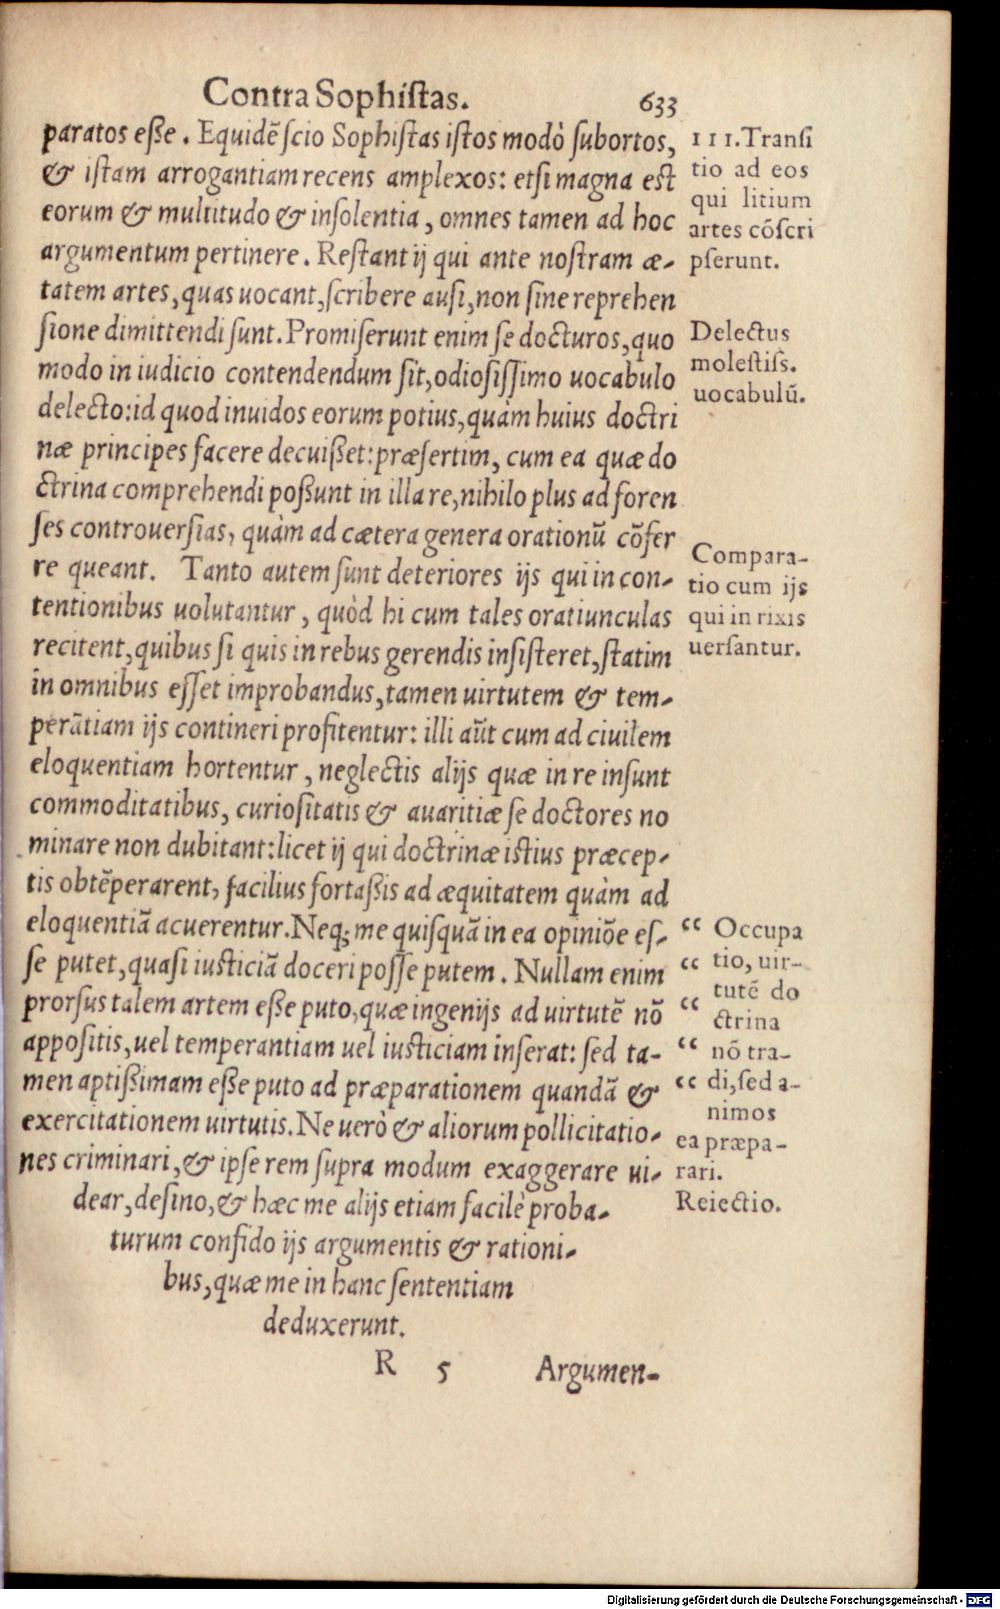 Contra Sophiſtas. 633
paratos eße. Equidē ſcio Sophiſtas iſtos modò ſubortos,
& iſtam arrogantiam recens amplexos: etſi magna eſt
eorum & multitudo & inſolentia, omnes tamen ad hoc
argumentum pertinere. Reſtant ij qui ante noſtram æ-
tatem artes, quas uocant, ſcribere auſi, non ſine reprehen
ſione dimittendi ſunt. Promiſerunt enim ſe docturos, quo
modo in iudicio contendendum ſit, odioſiſſimo uocabulo
delecto: id quod inuidos eorum potius, quàm huius doctri
næ principes facere decuißet: præſertim, cum ea quæ do
ctrina comprehendi poßunt in illa re, nihilo plus ad foren
ſes controuerſias, quàm ad cætera genera orationū cōfer
re queant. Tanto autem ſunt deteriores ijs qui in con-
tentionibus uolutantur, quòd hi cum tales oratiunculas
recitent, quibus ſi quis in rebus gerendis inſiſteret, ſtatim
in omnibus eſſet improbandus, tamen uirtutem & tem-
perātiam ijs contineri profitentur: illi aūt cum ad ciuilem
eloquentiam hortentur, neglectis alijs quæ in re inſunt
commoditatibus, curioſitatis & auaritiæ ſe doctores no
minare non dubitant: licet ij qui doctrinæ iſtius præcep-
tis obtēperarent, facilius fortaßis ad æquitatem quàm ad
eloquentiā acuerentur. Neq; me quiſquā in ea opiniōe eſ-
ſe putet, quaſi iuſticiā doceri poſſe putem. Nullam enim
prorſus talem artem eße puto, quæ ingenijs ad uirtutē nō
appoſitis, uel temperantiam uel iuſticiam inſerat: ſed ta-
men aptißimam eße puto ad præparationem quandā &
exercitationem uirtutis. Ne uerò & aliorum pollicitatio-
nes criminari, & ipſe rem ſupra modum exaggerare ui-
dear, deſino, & hæc me alijs etiam facilè proba-
turum confido ijs argumentis & rationi-
bus, quæ me in hanc ſententiam
deduxerunt.
R 5 Argumen-
III. Tranſi
tio ad eos
qui litium
artes cōſcri
pſerunt.
Delectus
moleſtiſs.
uocabulū.
Compara-
tio cum ijs
qui in rixis
uerſantur.
“ Occupa
“ tio, uir-
tutē do
“ ctrina
“ nō tra-
“ di, ſed a-
nimos
ea præpa-
rari.
Reiectio.
Digitalisierung gefördert durch die Deutsche Forschungsgemeinschaft - DFG